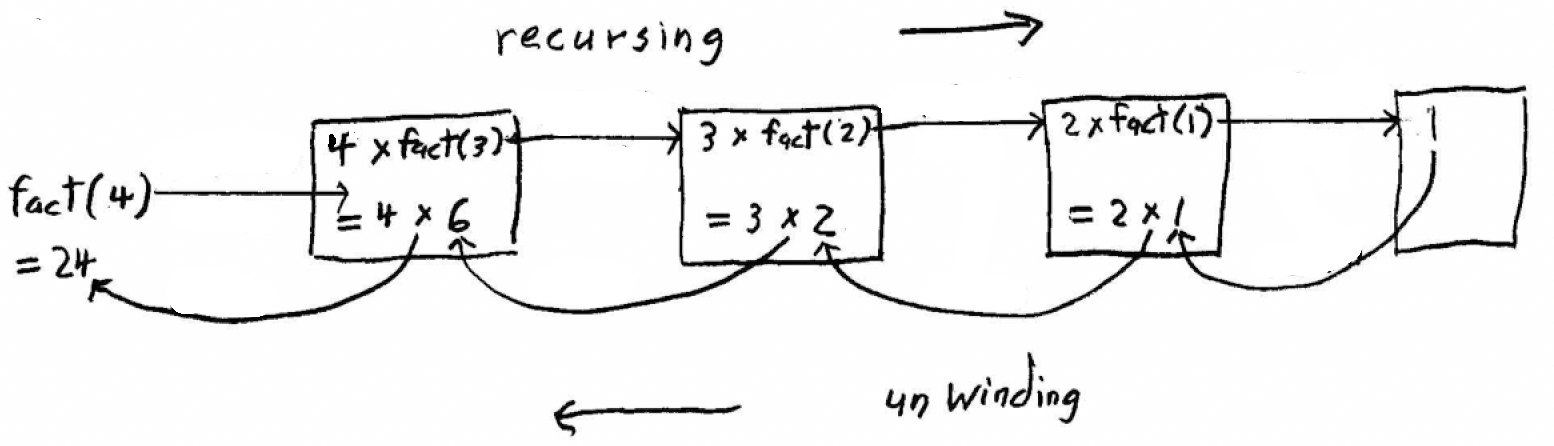 recursing
fact(4)
= 24
4 × fact(3)
= 4 × 6
3 × fact(2)
= 3 × 2
2 × fact(1)
= 2 × 1
1
unwinding